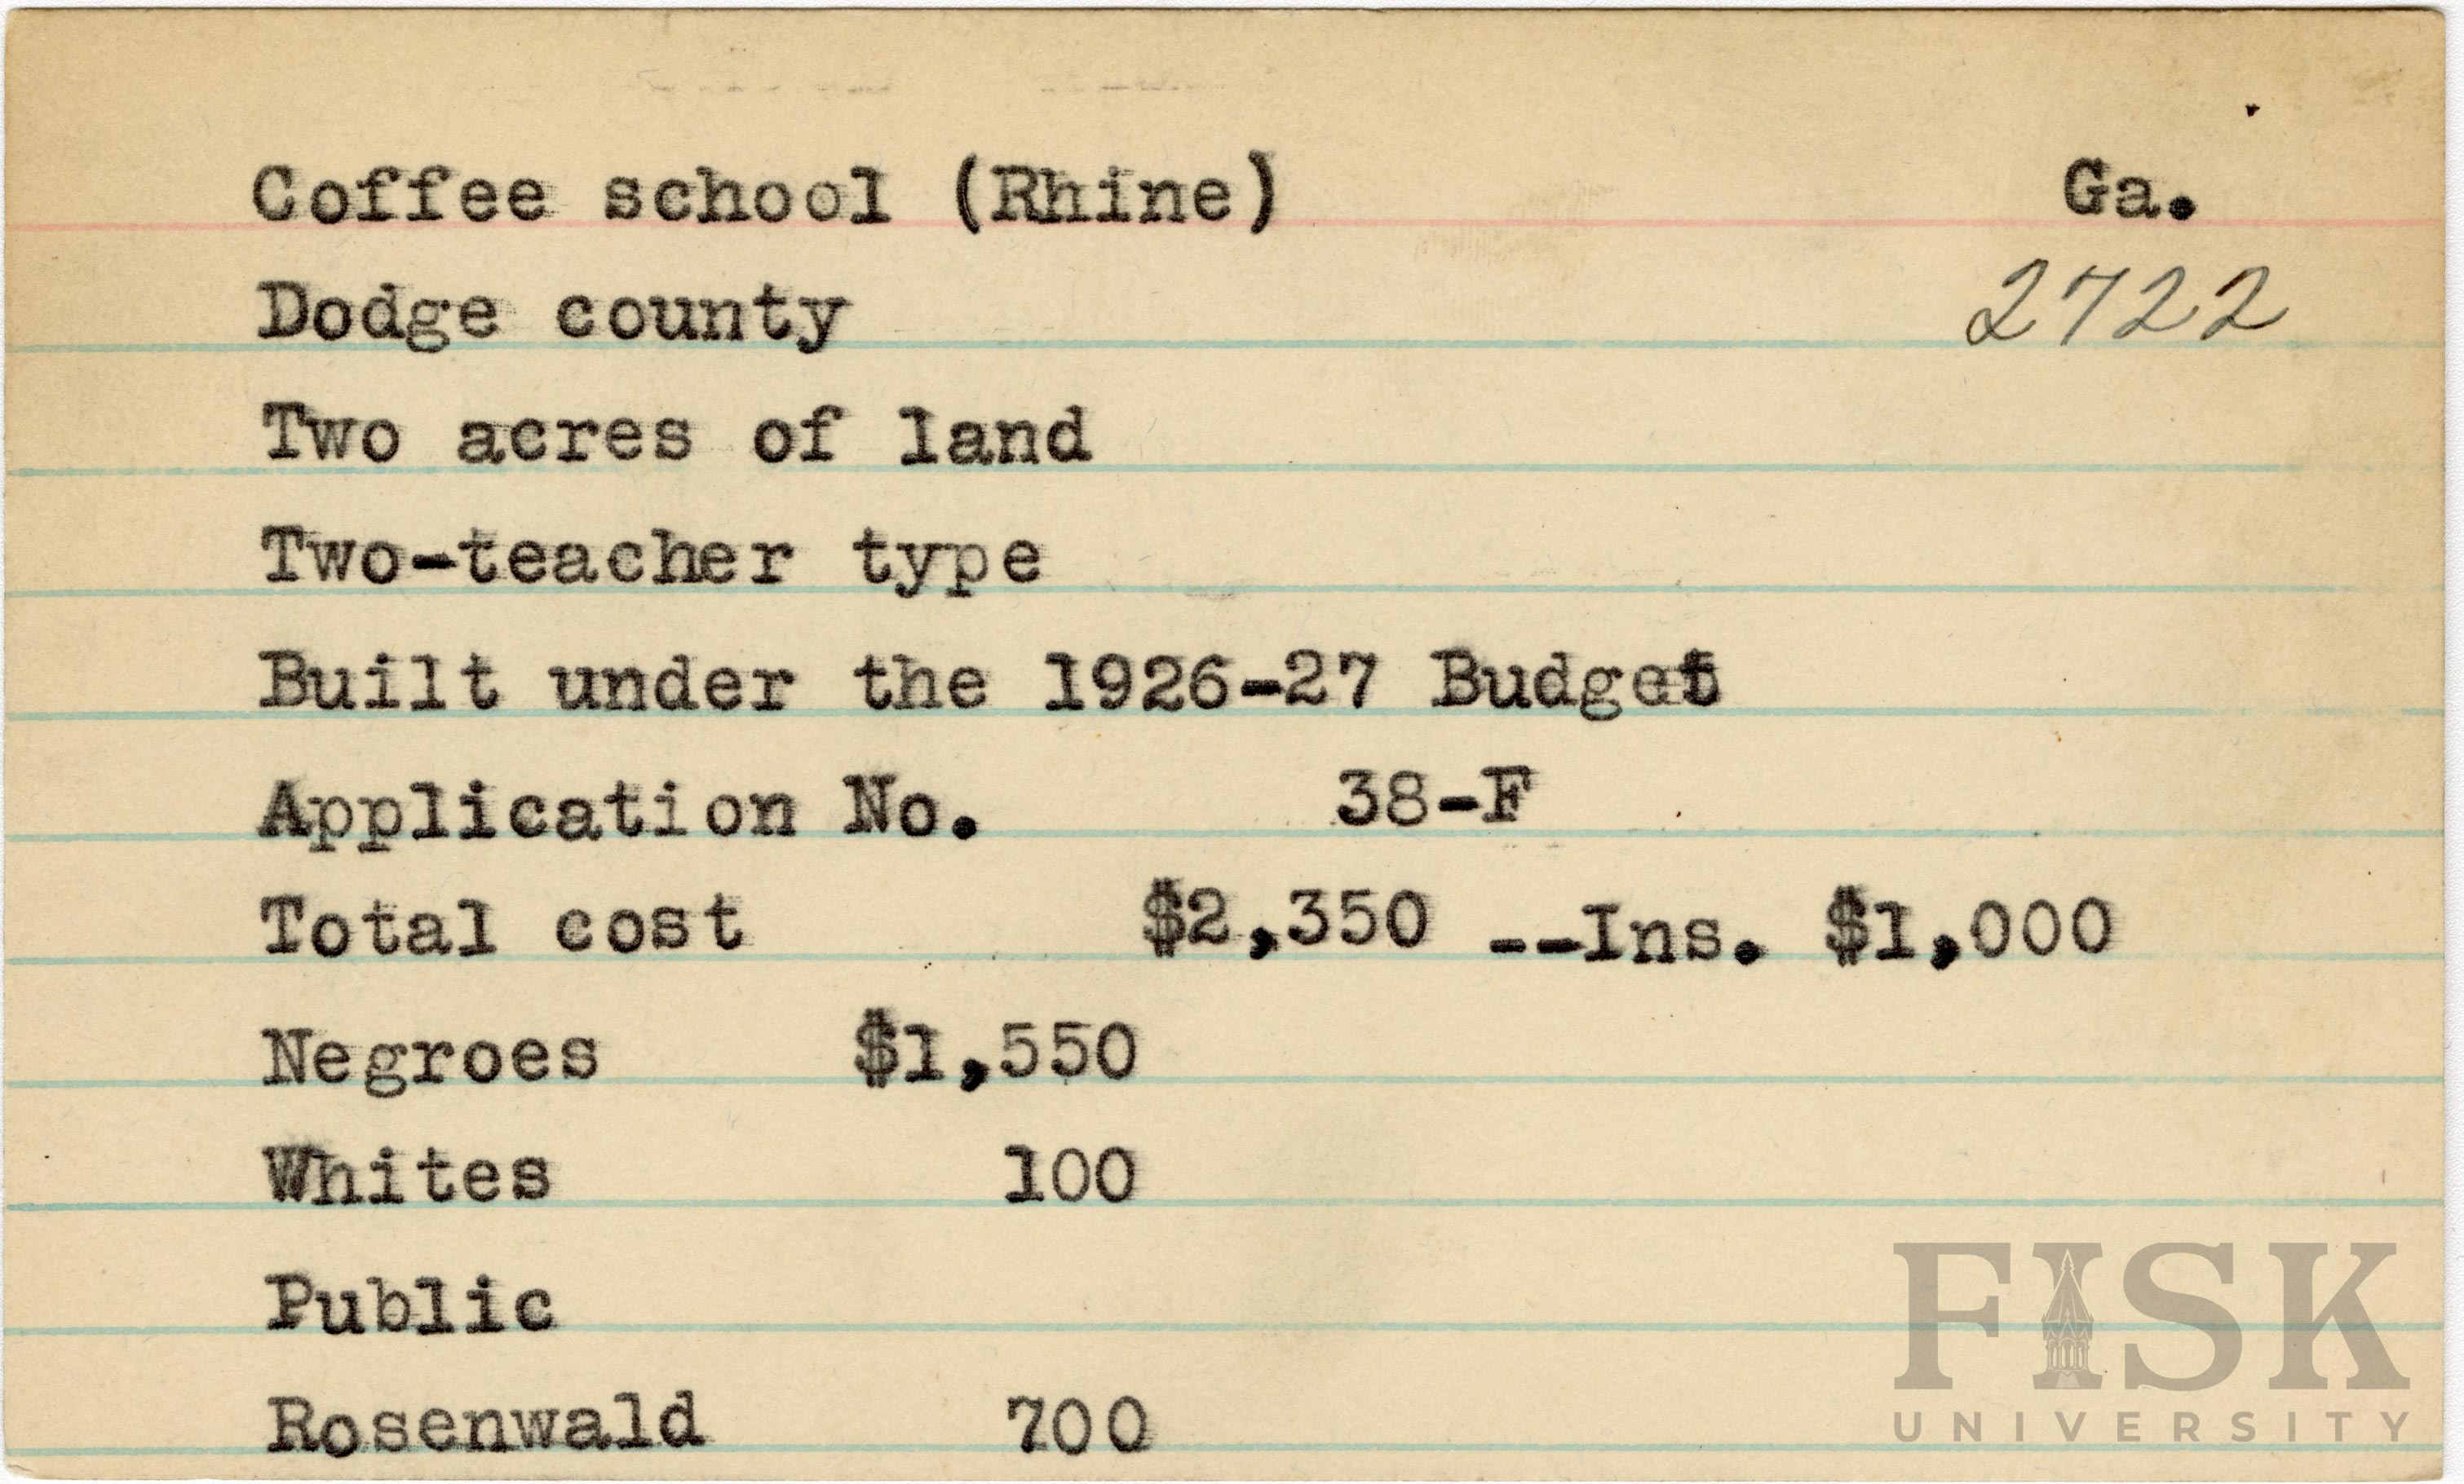 Coffee school (Rhine) Ga.
Dodge county 2722
Two acres of land
Two-teacher type
Built under the 1926-27 Budget
Application No. 38-F
Total cost $2,350 --Ins. $1,000
Negroes $1,550
Whites 100
Public
Rosenwald 700
FISK
UNIVERSITY